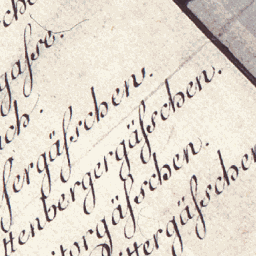 gaſse.
ch.
ſergäſschen.
ttenbergergäſschen.
torgäſschen.
ittergäſschen